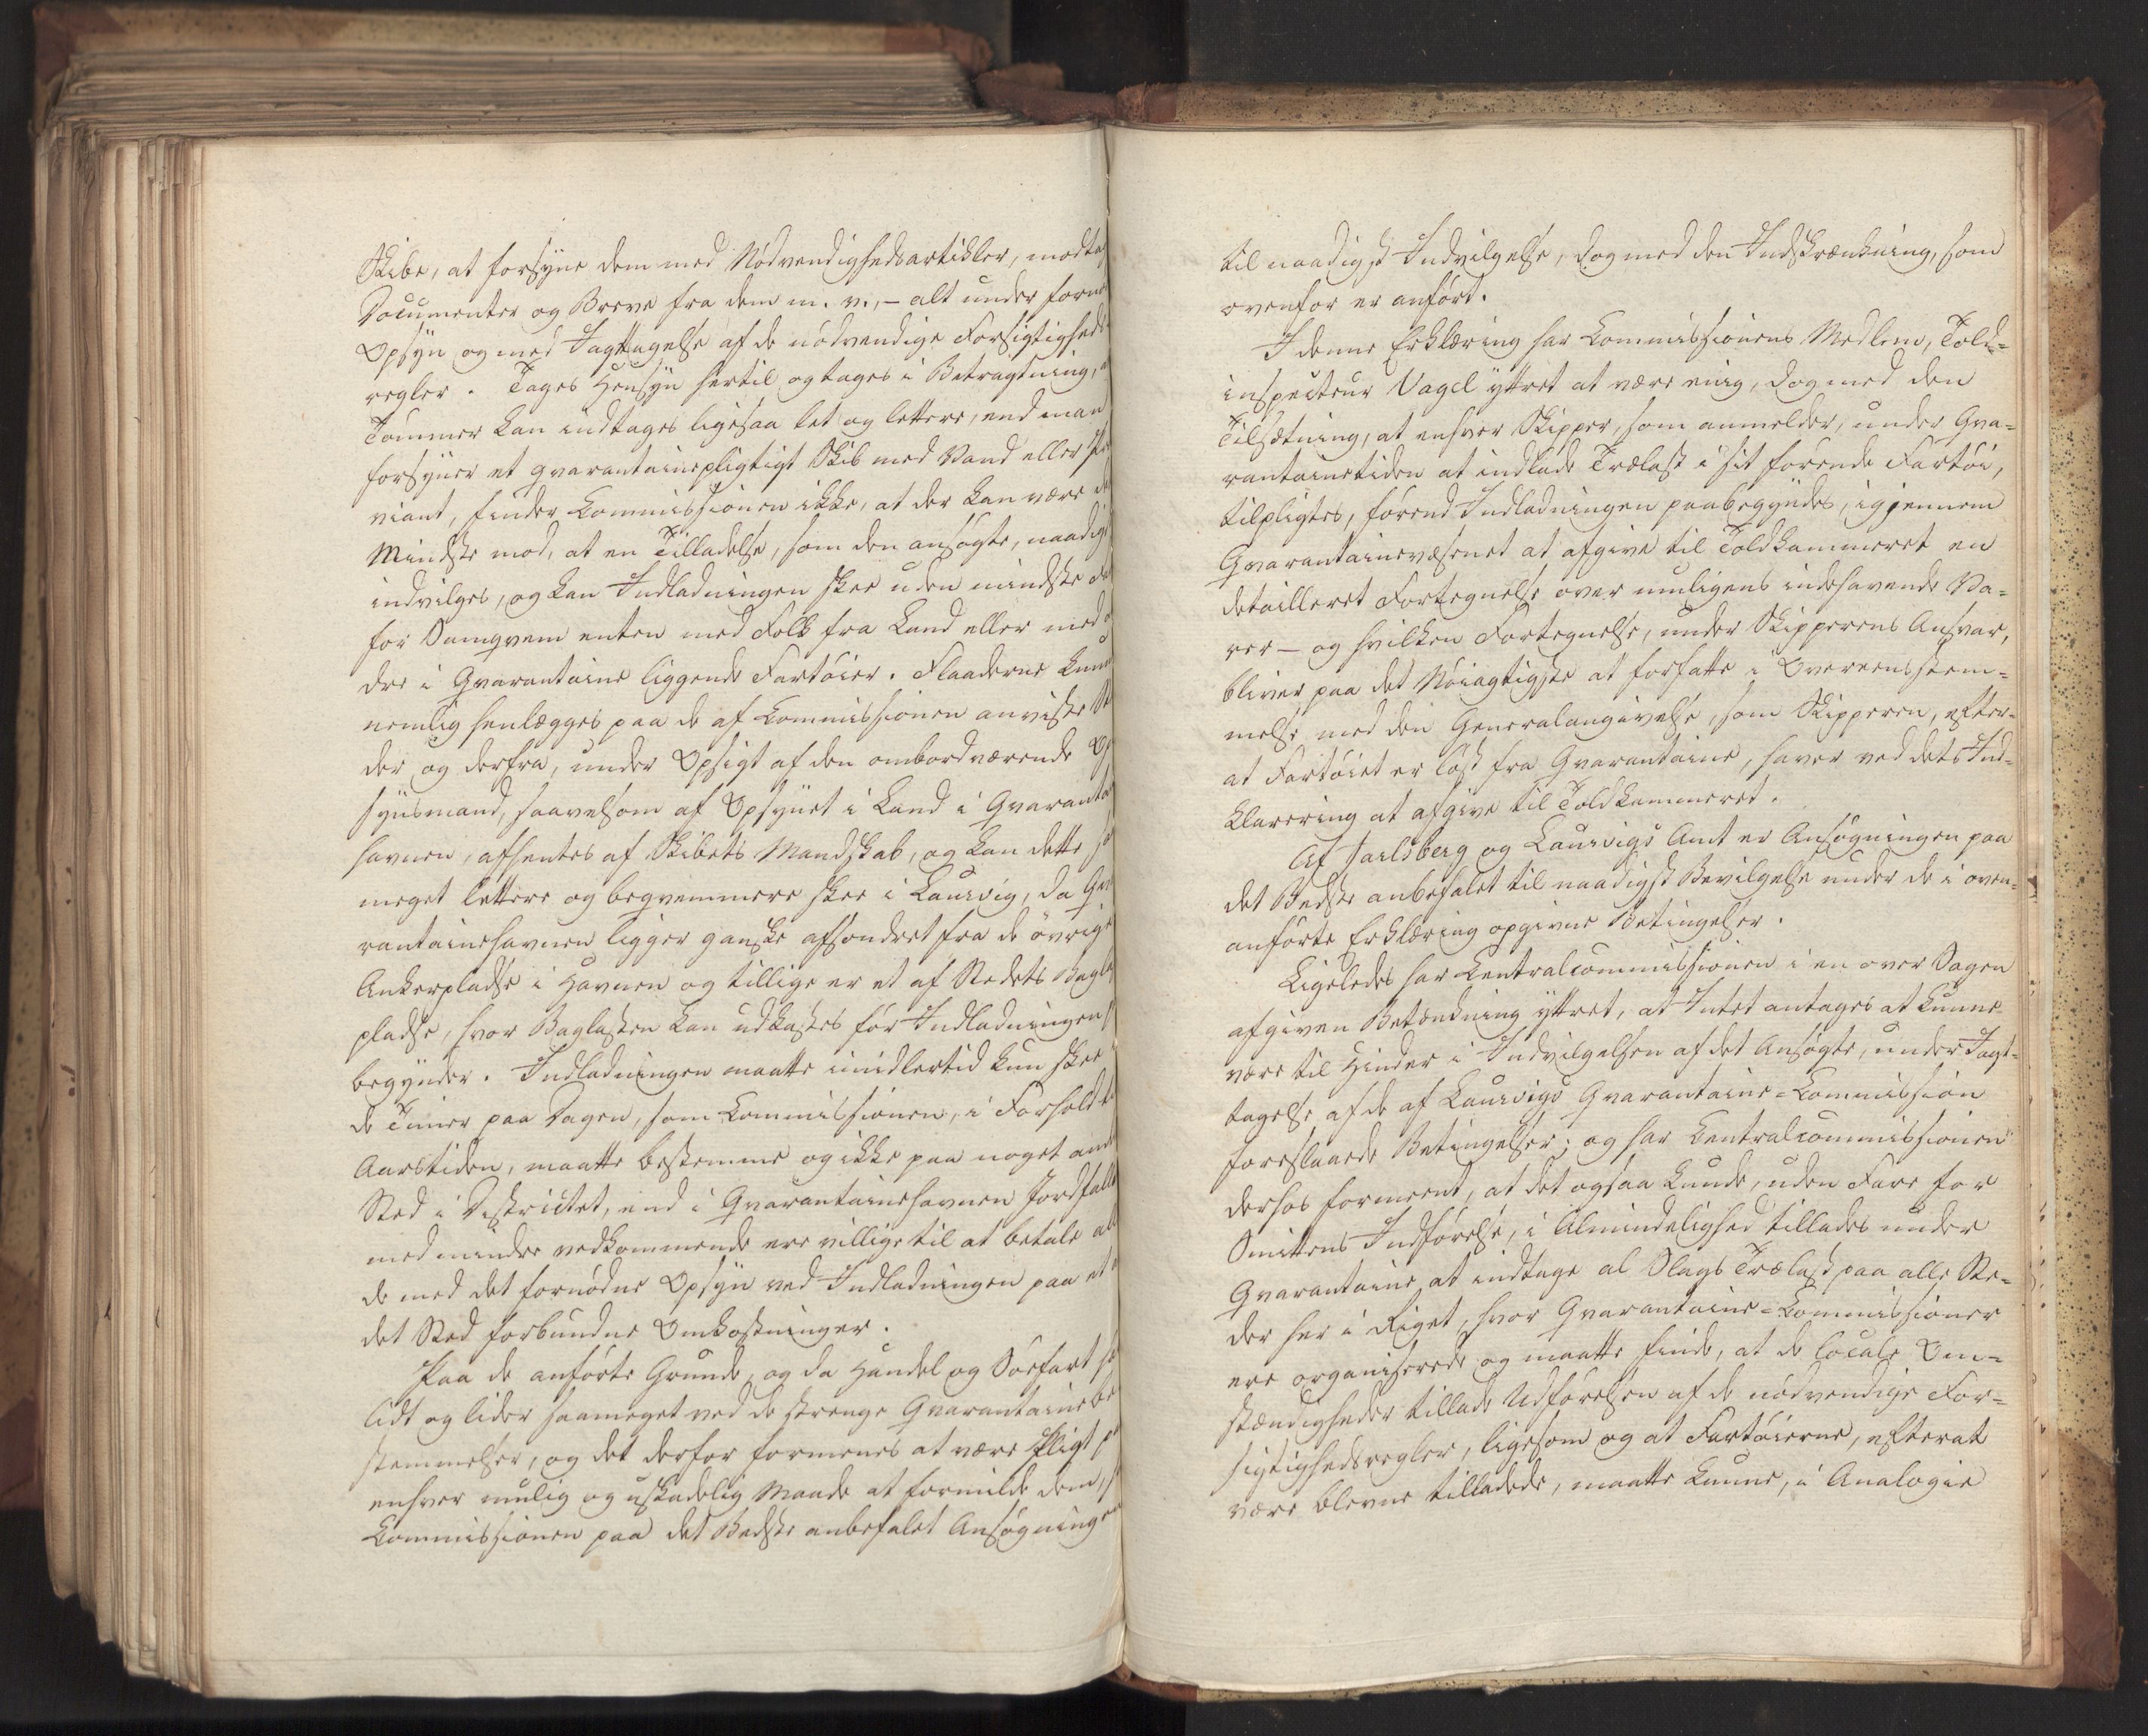 Skibe, at forsyne dem med Nødvendighedsartikler, modta
Documenter og Breve fra dem m. v., – alt under forn
Opsyn og med Iagttagelse af de nødvendige Forsigtigheds
regler. Tages Hensyn hertil og tages i Betragtning,
Tømmer kan indtages ligesaa let og lettere, end man
forsyner et qvarantainepligtigt Skib med Vand eller
viant, finder Commissionen ikke, at der kan være
Mindste mod, at en Tilladelse, som den ansøgte, naadig
indvilges, og kan Indladningen skee uden mindste
for Samqvem enten med Folk fra Land eller med
dre i Qvarantaine liggende Fartøier. Flaaderne kun
nemlig henlægges paa de af Commissionen anviste
der og derfra, under Opsigt af den ombordværende Op
synsmand, saavelsom af Opsynet i Land i Qvaranta
havnen, afhentes af Skibets Mandskab, og kan dette
meget lettere og beqvemmere skee i Laurvig, da Qva
rantainehavnen ligger ganske afsondret fra de øvrige
Ankerpladse i Havnen og tillige er et af Stedets Bagla
pladse, hvor Baglasten kan udkastes før Indladningen
begynder. Indladningen maatte imidlertid kun skee
de Timer paa Dagen, som Commissionen, i Forhold
Aarstiden, maatte bestemme og ikke paa noget an
Sted i Districtet, end i Qvarantainehavnen Jordfald
med mindre vedkommende ere villige til at betale al
de med det fornødne Opsyn ved Indladningen paa et
det Sted forbundne Omkostninger.
Paa de anførte Grunde, og da Handel og Søefart
lidt og lider saameget ved de strenge Qvarantainebe
stemmelser, og det derfor formenes at være Pligt
enhver mulig og uskadelig Maade at formilde dem,
Commissionen paa det Bedste anbefalet Ansøgningen
til naadigst Indvilgelse, dog med den Indskrænkning, som
ovenfor er anført.
I denne Erklæring har Commissionens Medlem, Told=
inspecteur Vagel yttret at være enig, dog med den
Tilsætning, at enhver Skipper, som anmelder, under Qva=
rantainetiden at indlade Trælast i sit førende Fartøi,
tilpligtes, førend Indladningen paabegyndes, igjennem
Qvarantainevæsenet at afgive til Toldkammeret en
detailleret Fortegnelse over muligens indehavende Va=
rer – og hvilken Fortegnelse, under Skipperens Ansvar,
bliver paa det Nøiagtigste at forfatte i Overeensstem=
melse med den Generalangivelse, som Skipperen, efter=
at Fartøiet er løst fra Qvarantaine, haver ved dets Ind=
klarering at afgive til Toldkammeret.
Af Jarlsberg og Laurvigs Amt er Ansøgningen paa
det Bedste anbefalet til naadigst Bevilgelse under de i oven=
anførte Erklæring opgivne Betingelser.
Ligeledes har Centralcommissionen i en over Sagen
afgiven Betænkning yttret, at Intet antages at kunne
være til Hinder i Indvilgelsen af det Ansøgte, under Iagt=
tagelse af de af Laurvigs Qvarantaine=Commission
foreslaaede Betingelser; og har Centralcommissionen
derhos formeent, at det ogsaa kunde, uden Fare for
Smittens Indførelse, i Almindelighed tillades under
Qvarantaine at indtage al Slags Trælast paa alle Ste=
der her i Riget, hvor Qvarantaine=Commissioner
ere organiserede og maatte finde, at de locale Om=
stændigheder tillade Udførelsen af de nødvendige For=
sigtighedsregler, ligesom og at Fartøierne, efterat
være blevne tilladede, maatte kunne, i Analogie